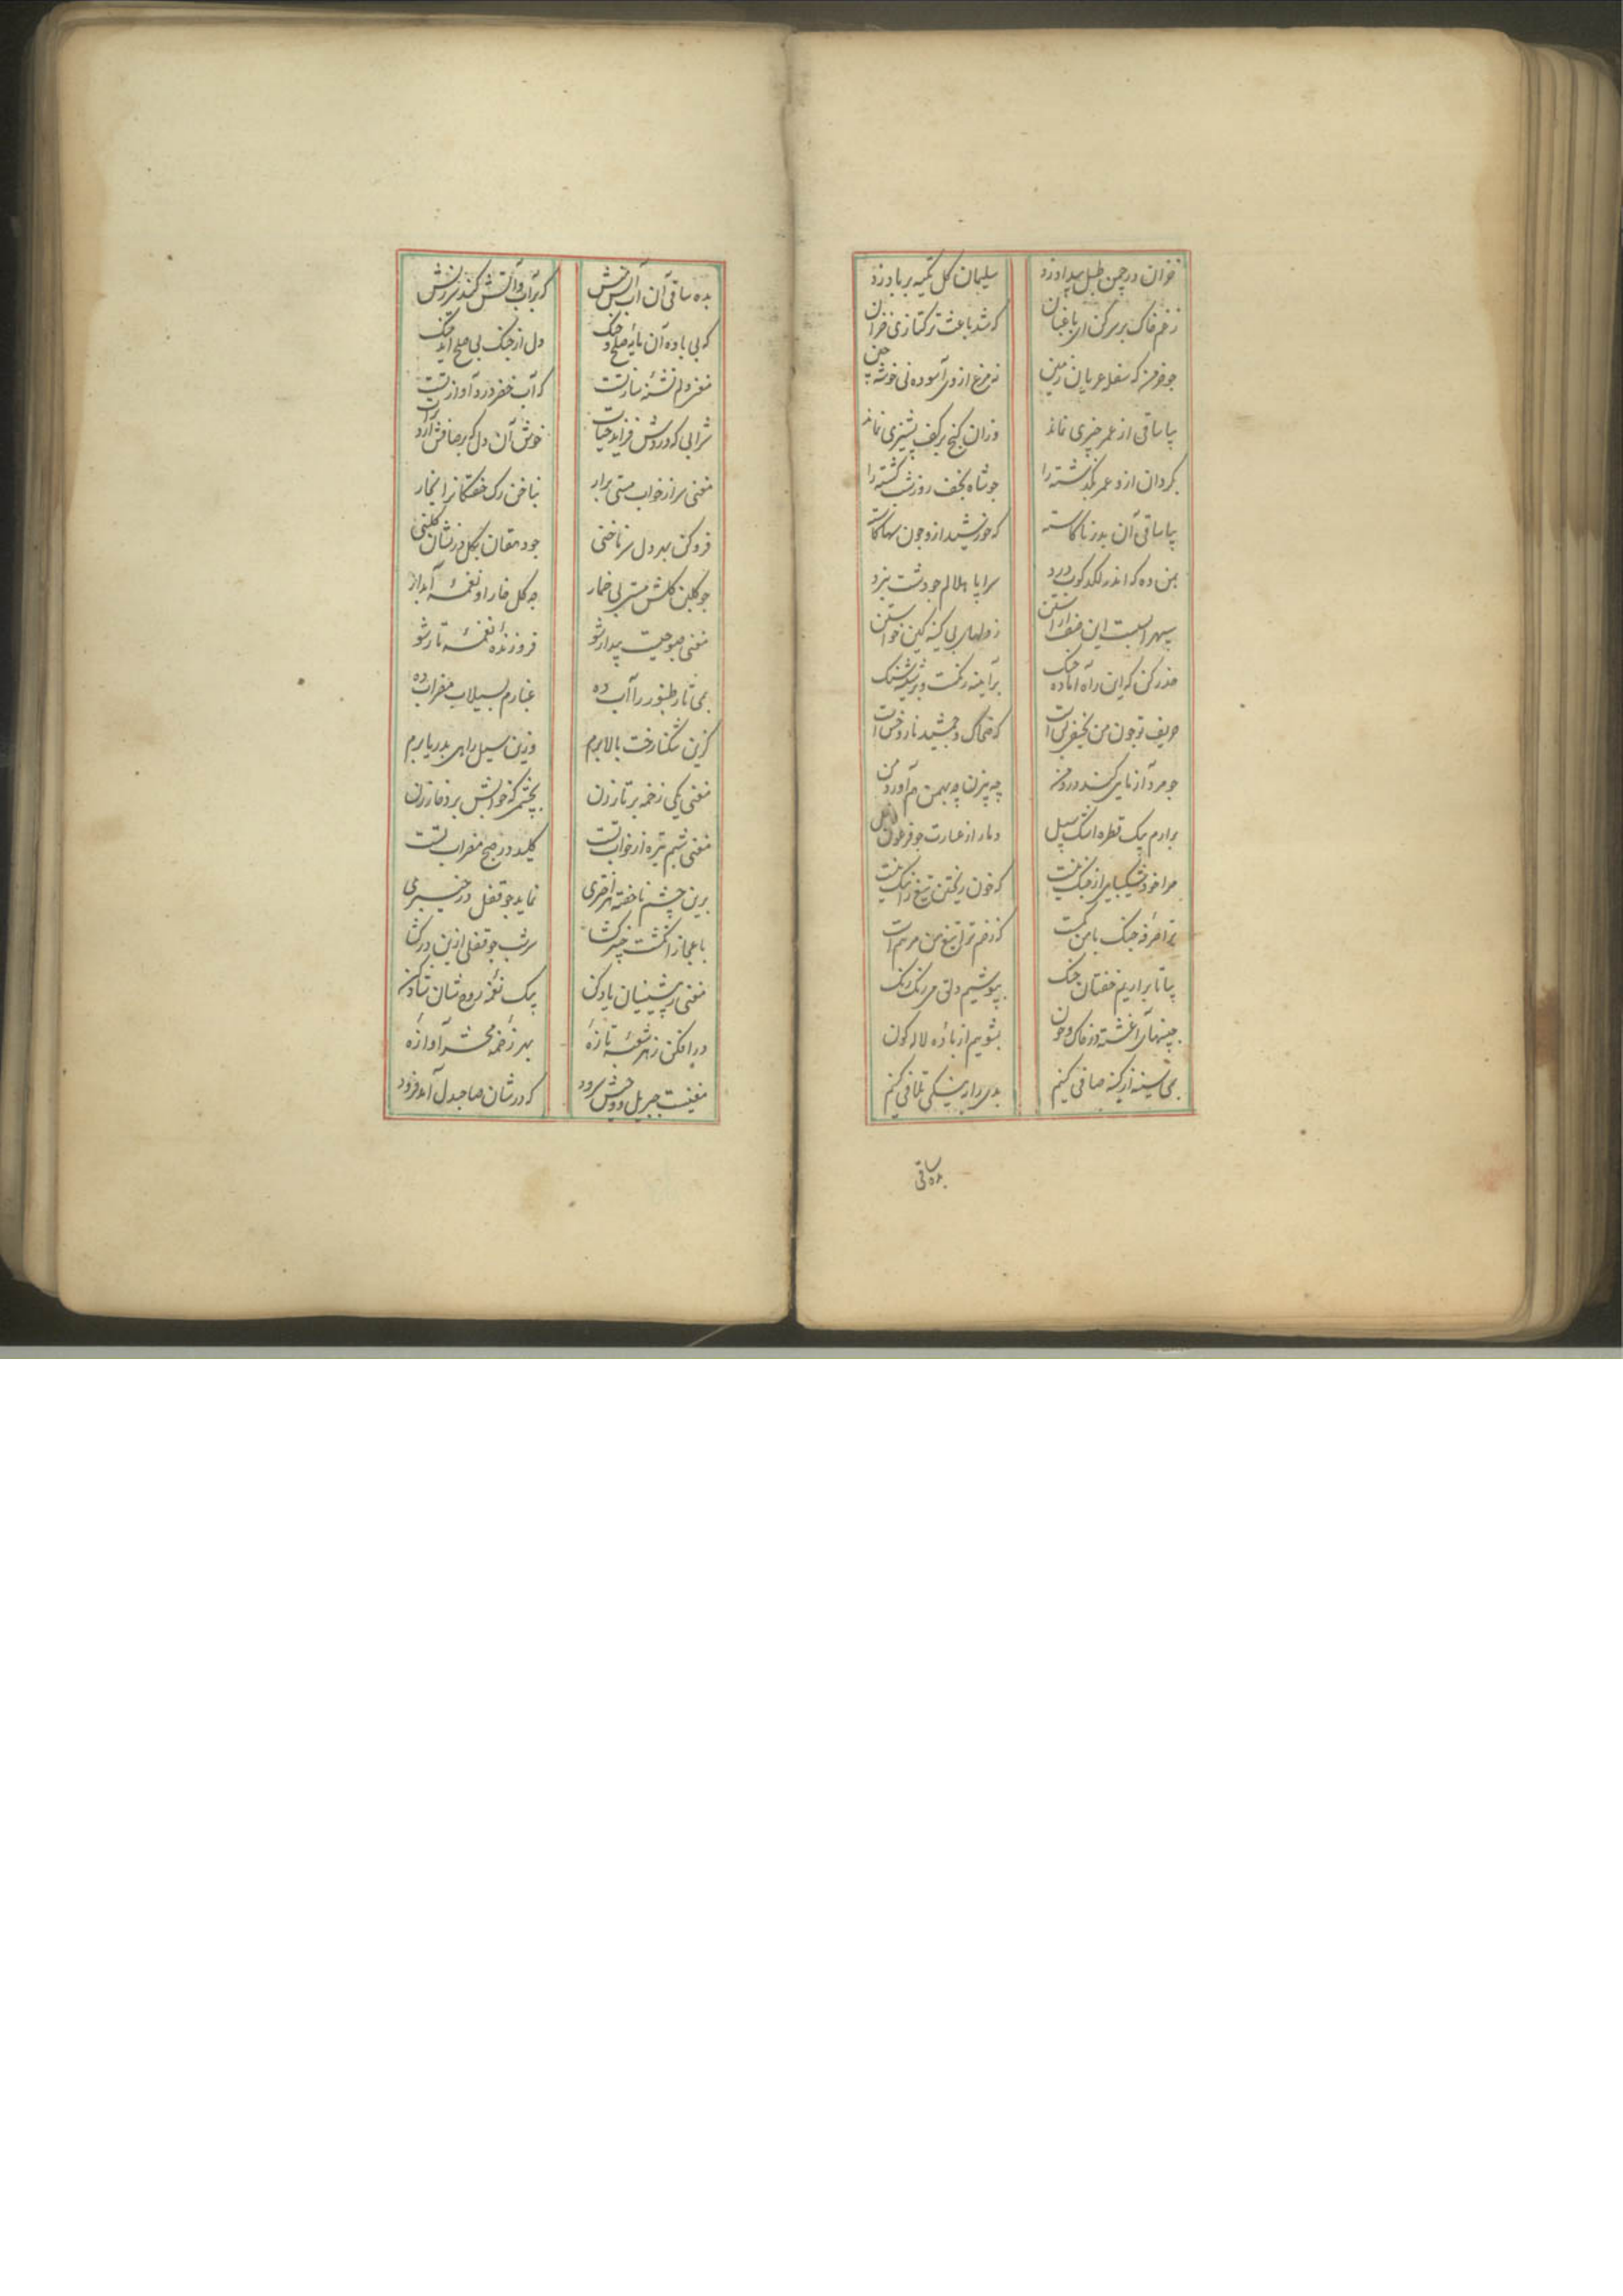 خزان در چمن طبل بیداد زد سلیمان گل تکیه بر باد زد
ز غم خاک بر سر کن ای باغبان که شد باعث ترکتازی خزان
چو خرمن که شغل عریان زمین نه مرغ از وی آسوده نی خوشه چین
بیا ساقی از عمر چیزی نماند وزان گنج بر کف پشیزی نماند
بگردان ازو عمر بگذشته را چو شاه نجف روز شب گشته را
بیا ساقی آن بدر ناکاسته که خورشید ازو چون سها کاسته
بمن ده که اندر لگدکوب درد سراپا هلالم چو دشت نبرد
سپهر است این صف آراستن ز دلهای بی کینه کین خواستن
حذر کن که این راه آماده جنگ بر آیینه رنگست و بر شیشه سنگ
حریف تو چون من نحیفی بس است که ضحاک و جمشید نار و خس است
چو مرد آزمایی کند درد من چه بیژن چه بهمن هم آورد من
برآرم بیک قطره اشک سیل دمار از عبارت چو فرعون
مرا خود شکیبایی از جنگ نیست که خون ریختن تیغ را ننگ نیست
ترا حرفه جنگ با من کمست که زخم ترا تیغ من مرهم است
بیا تا برآریم خفتان جنگ بپوشیم دلق می رنگ رنگ
جبینهای آغشته در خاک و خون بشوییم از باده لاله گون
بمی سینه از کینه صافی کنیم بدی را به نیکی تلافی کنیم
بده ساقی
بده ساقی آن آب آتش که بر آب و آتش کند سرزنش
که بی باده آن مایه صلح و جنگ دل از جنگ بی صلح آمد بتنگ
مغنی دلم تشنه ساز تست که آب خضر در دم آواز تست
شرابی که دردش فزاید حیات خوش آن دل که بر صافش آرد
مغنی سر از خواب مستی برار بناخن رگ خفتگان را بخار
فرو کن بهر دل سر ناخنی چو دهقان بگل در نشان گلبنی
چو گلبن گلش مستی بی خمار چه گل خار او نغمه آبدار
مغنی صبوحیست بیدار شو فروزنده نغمه تار شو
بمی تار طنبور را آب ده غبارم بسیلاب مضراب ده
کزین تنگنا رخت بالا برم وزین سیل راهی بدریا برم
مغنی یکی زخمه بر تار زن بچشمی که خوابش برد خار زن
مغنی شبم تیره از خواب تست کلید در صبح مضراب تست
برین چشم ناخفته هر اختری نماید چو قفل در خیبری
باعجاز انگشت خیبر گشا سرشب چو قفل ازین در گشا
مغنی ز پیشینیان یاد کن بیک نغمه روح شان شاد کن
درافکن ز هر شعبه تازه بهر زخمه محشر آوازه
مغنیست جبریل و وحیش سرود که در شان صاحبدل آمد فرود